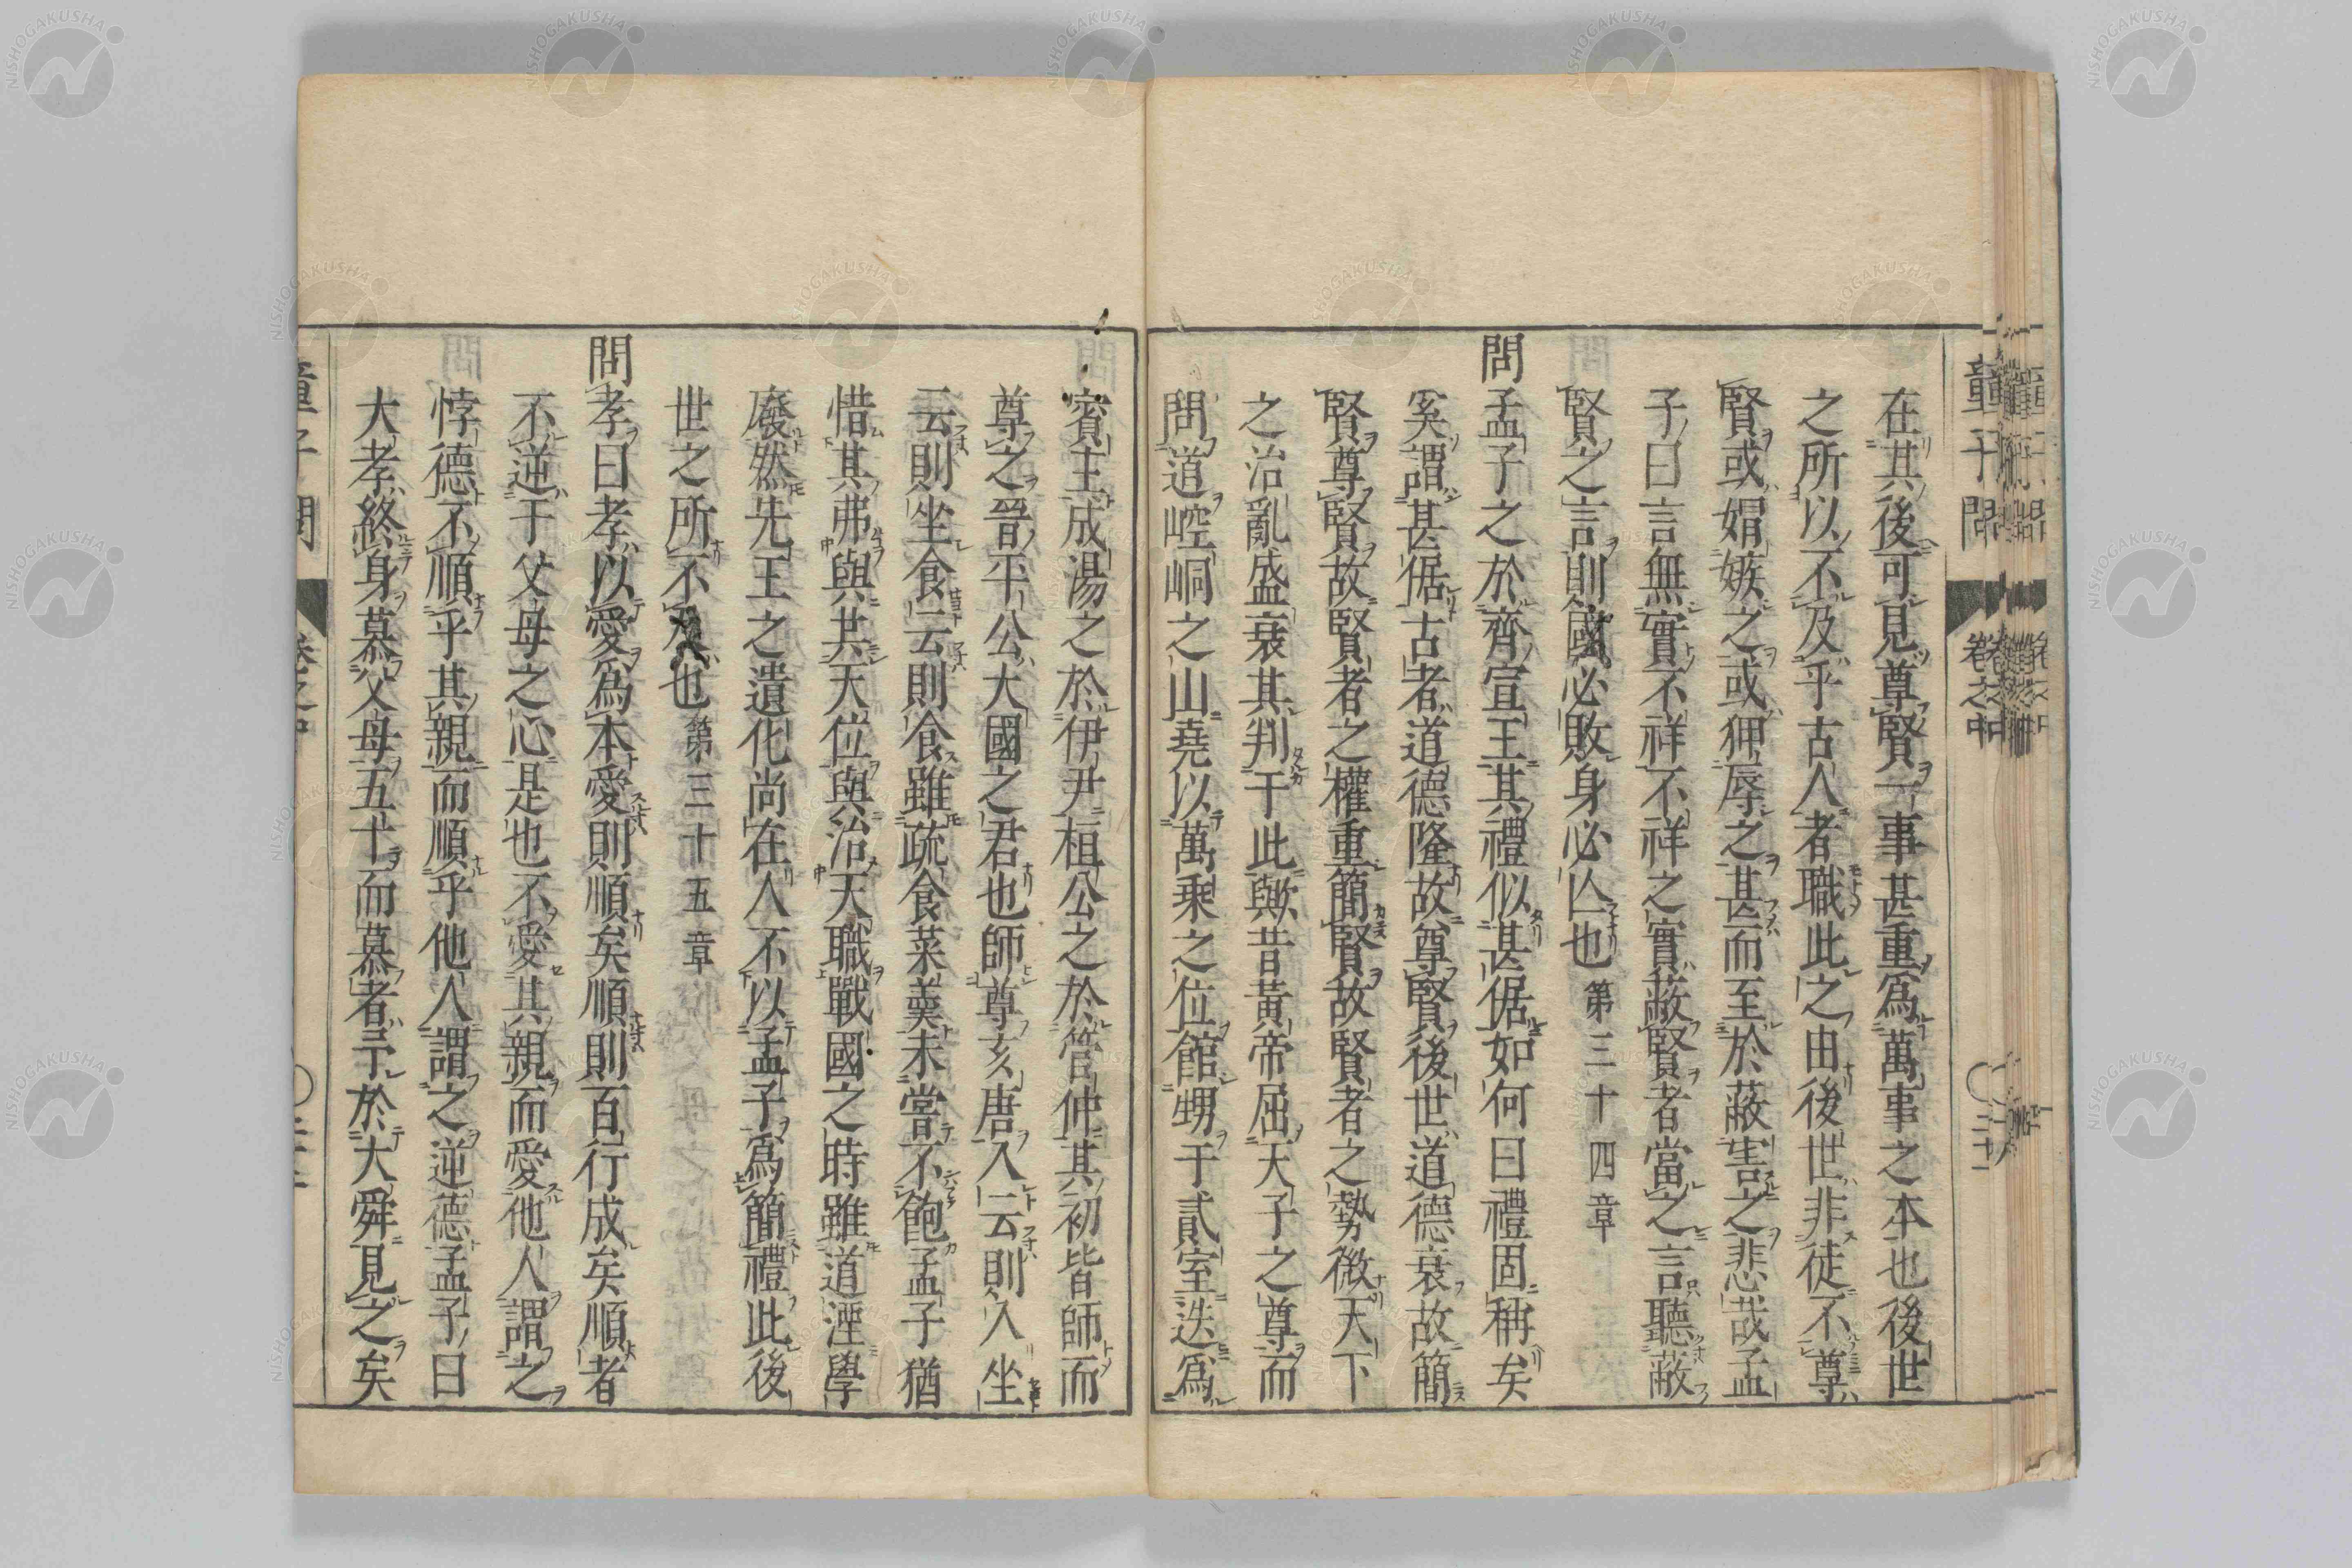 童子問 卷之中
在其後可見尊賢一事甚重爲萬事之本也後世
之所以不及乎古人者職此之由後世非徒不尊
賢或媢嫉之或狎辱之甚而至於蔽害之悲哉孟
子曰言無實不祥不祥之實蔽賢者當之言聽蔽
賢之言則國必敗身必亾也 第三十四章
問孟子之於齊宣王其禮似甚倨如何曰禮固稱矣
奚謂甚倨古者道德隆故尊賢後世道德衰故簡
賢尊賢故賢者之權重簡賢故賢者之勢微天下
之治亂盛衰其判于此歟昔黃帝屈天子之尊而
問道崆峒之山堯以萬乘之位館甥于貳室迭爲
賓主成湯之於伊尹桓公之於管仲其初皆師而
尊之晉平公大國之君也師尊亥唐入云則入坐
云則坐食云則食雖疏食菜羹未嘗不飽孟子猶
惜其弗與共天位與治天職戰國之時雖道湮學
廢然先王之遺化尚在人不以孟子爲簡禮此後
世之所不及也 第三十五章
問孝曰孝以愛爲本愛則順矣順則百行成矣順者
不逆于父母之心是也不愛其親而愛他人謂之
悖德不順乎其親而順乎他人謂之逆德孟子曰
大孝終身慕父母五十而慕者予於大舜見之矣
童子問 卷之中
NISHOGAKUSHA